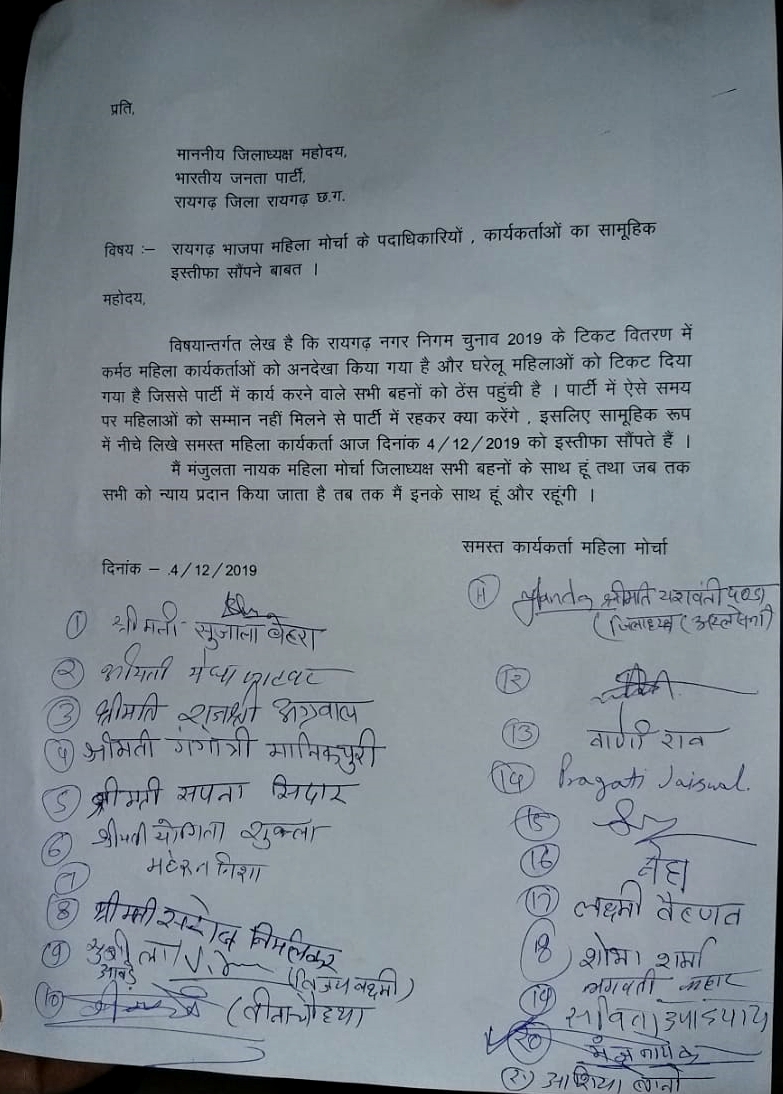 प्रति,
माननीय जिलाध्यक्ष महोदय,
भारतीय जनता पार्टी,
रायगढ़ जिला रायगढ़ छ.ग.
विषय :– रायगढ़ भाजपा महिला मोर्चा के पदाधिकारियों , कार्यकर्ताओं का सामूहिक
इस्तीफा सौंपने बाबत ।
महोदय,
विषयान्तर्गत लेख है कि रायगढ़ नगर निगम चुनाव 2019 के टिकट वितरण में
कर्मठ महिला कार्यकर्ताओं को अनदेखा किया गया है और घरेलू महिलाओं को टिकट दिया
गया है जिससे पार्टी में कार्य करने वाले सभी बहनों को ठेंस पहुंची है । पार्टी में ऐसे समय
पर महिलाओं को सम्मान नहीं मिलने से पार्टी में रहकर क्या करेंगे , इसलिए सामूहिक रूप
में नीचे लिखे समस्त महिला कार्यकर्ता आज दिनांक 4/12/2019 को इस्तीफा सौंपते हैं ।
मैं मंजुलता नायक महिला मोर्चा जिलाध्यक्ष सभी बहनों के साथ हूं तथा जब तक
सभी को न्याय प्रदान किया जाता है तब तक मैं इनके साथ हूं और रहूंगी ।
समस्त कार्यकर्ता महिला मोर्चा
दिनांक – 4/12/2019
① श्रीमती सुजाला बेहरा
② श्रीमती
③ श्रीमति राजश्री अग्रवाल
④ श्रीमती गंगोत्री मानिकपुरी
⑤ श्रीमती सपना सिदार
⑥ श्रीमती योगिता शुक्ला
⑦ मेहरुन निशा
⑧ श्रीमती सरोज निर्मलकर
⑨ सुशीला
(विजय लक्ष्मी)
⑩
⑪ श्रीमति यशवंती
⑫
⑬ वाणी राव
⑭ Pragati Jaiswal.
⑮
⑯ नेहा
⑰ लक्ष्मी वैष्णव
⑱ शोभा शर्मा
भगवती
⑲ सविता उपाध्याय
⑳ मंजु नायक
㉑ आशिया बानो